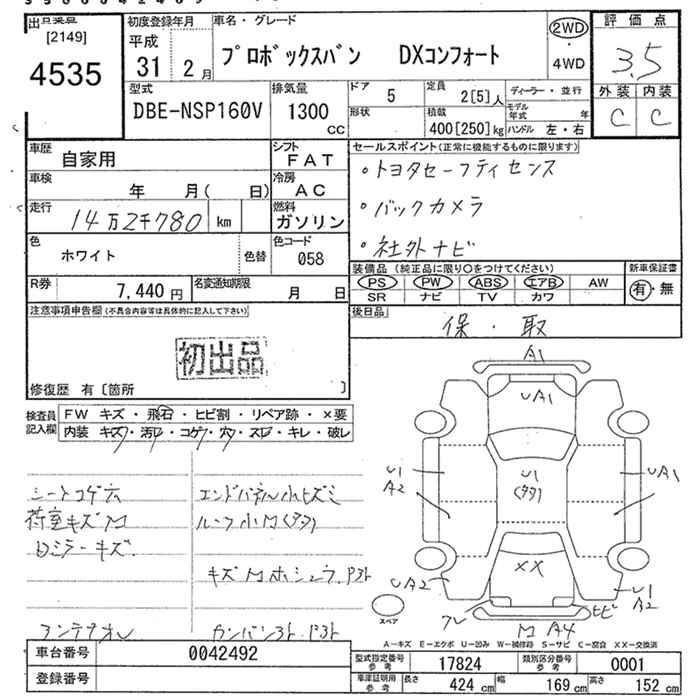 [2149]
4535
初度登録年月
平成
31 2月
車名・グレード
プロボックスバン DXコンフォート
2WD
・
4WD
評価点
3.5
外装 内装
C C
型式
DBE-NSP160V
排気量
1300
cc
ドア 5
定員 2[5]人
形状
積載 400[250]kg
ディーラー・並行
モデル年式 年
ハンドル 左・右
車歴 自家用
シフト FAT
車検 年 月( 日)
冷房 AC
走行 14万2千780 km
燃料 ガソリン
色 ホワイト
色替
色コード 058
R券 7,440円
名変通知期限 月 日
セールスポイント(正常に機能するものに限ります)
・トヨタセーフティセンス
・バックカメラ
・社外ナビ
装備品 (純正品に限り○をつけてください)
新車保証書
PS PW ABS エアB AW
有・無
SR ナビ TV カワ
後日品
保・取
注意事項申告欄(不具合内容等は具体的に記入して下さい)
初出品
修復歴 有〔箇所 〕
検査員記入欄
FW キズ・飛石・ヒビ割・リペア跡・×要
内装 キズ・汚レ・コゲ・穴・スレ・キレ・破レ
シートコゲ穴
荷室キズM
エンドパネル小ヒズミ
ルーフ小M(タタ)
キズM
A1
UA1
U1
A2
U1
(タタ)
UA1
XX
UA2
U1
A2
ヒビ
M A4
スペア
A-キズ E-エクボ U-凹み W-補修跡 S-サビ C-腐食 XX-交換済
車台番号 0042492
登録番号
型式指定番号 参考 17824
類別区分番号 参考 0001
車庫証明用 参考
長さ 424cm
幅 169cm
高さ 152cm